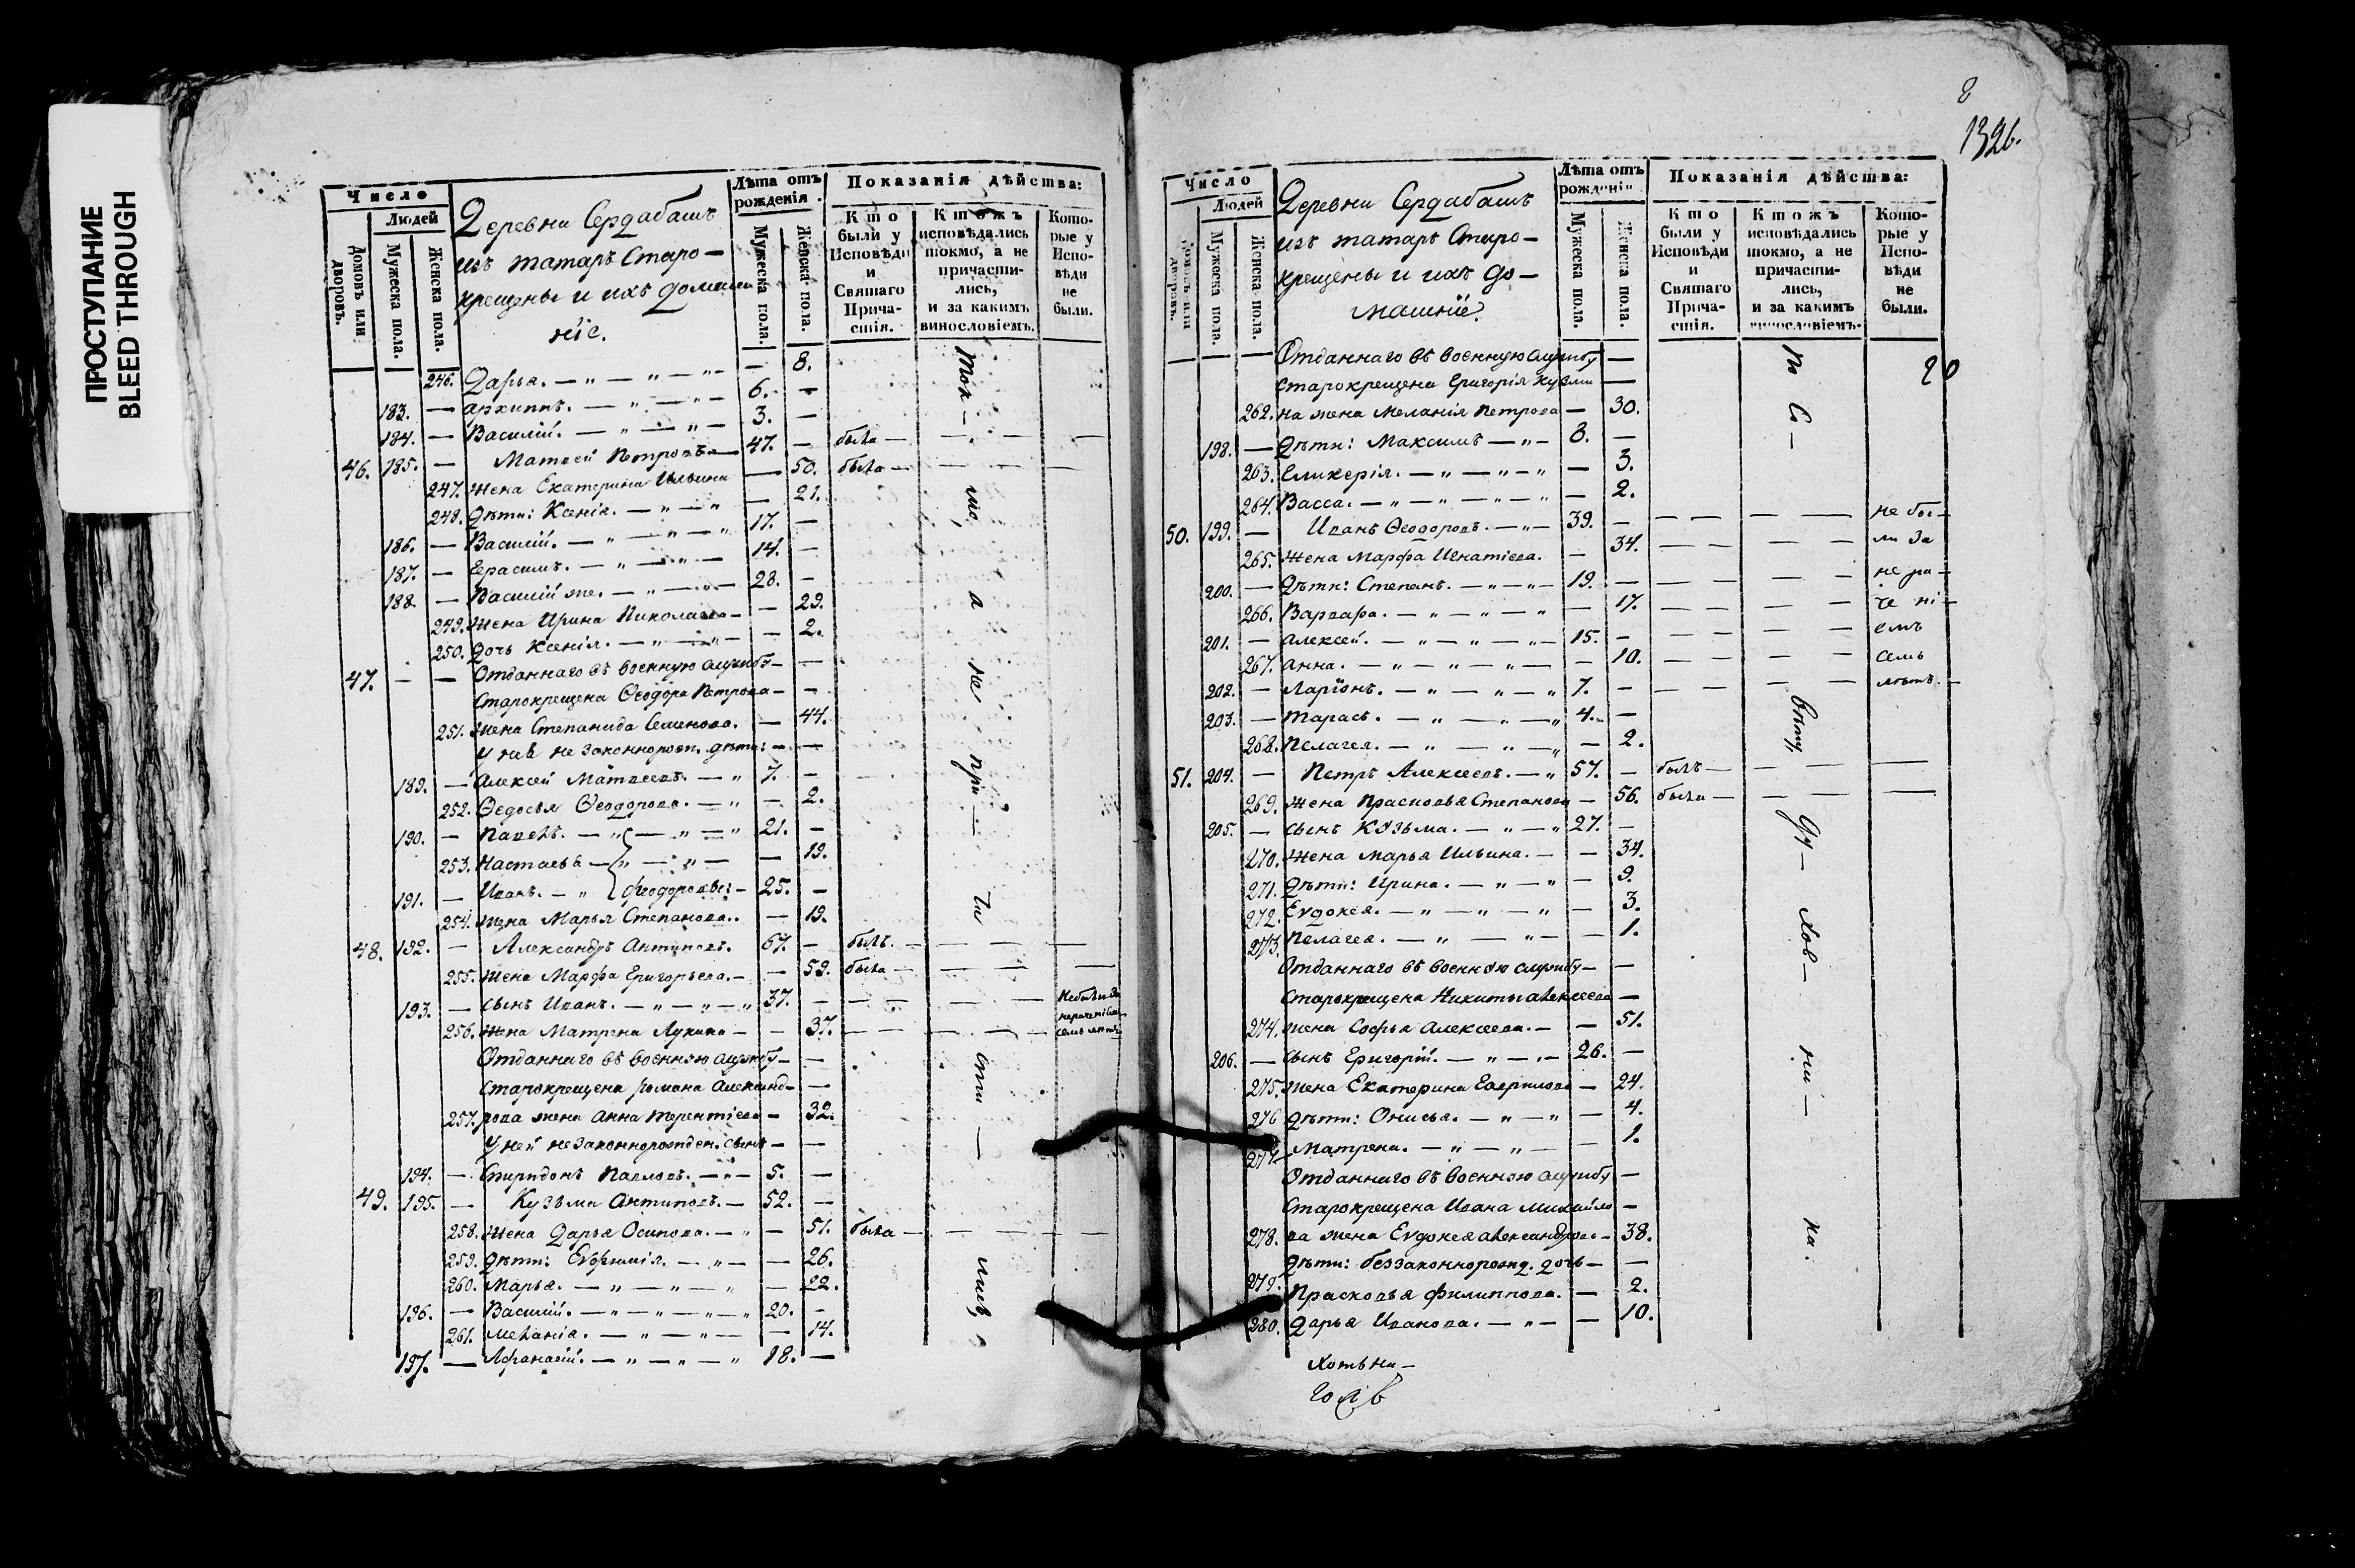 ПРОСТУПАНИЕ
BLEED THROUGH
Число
Людей
Домовъ или дворовъ.
Мужеска пола.
Женска пола.
Деревни Сердабашъ
изъ татаръ Старо-
крещены и ихъ домаш
ніе.
Лѣта отъ рожденія.
Мужеска пола.
Женска пола.
Показанія дѣйства:
Кто были у Исповѣди и Святаго Причастія.
Ктожъ исповѣдались токмо, а не причасти-лись, и за какимъ винословіемъ.
Кото-рые у Испо-вѣди не были.
246. Дарья. — „ — „ — „ — 8.
183. — Архиппъ. — „ — „ — 6. —
184. — Василій. — „ — „ — 3. —
46. 185. — Матвей Петровъ — 47. — была — — —
247. Жена Екатерина Ильина — 50. была — — —
248. Дѣти: Ксенія. — „ — „ — 21.
186. — Василій. — „ — „ — „ 17. —
187. — Герасимъ. — „ — „ — 14. —
188. — Василій же. — „ — „ — 28. —
249. Жена Ирина Николаева — — 29.
250. Дочь Ксенія. — „ — „ — — 2.
47. — — Отданнаго въ военную службу — —
Старокрещена Ѳеодора Петрова — —
251. жена Степанида Семенова. — 44.
У нея не законнорожд. дѣти: — —
189. — Алексей Матвеевъ. — „ 7. —
252. Ѳедосья Ѳеодорова. — „ — 2.
190. — Павелъ. — „ — „ — „ 21. —
253. Настасья — „ — „ — — 19.
191. — Иванъ. — „ Ѳеодоровы: — 25. —
254. жена Марья Степанова. — 19.
48. 192. — Александръ Антиповъ. 67. — былъ. — — —
255. жена Марфа Григорьева. — — 59. была — — —
193. — сынъ Иванъ. — „ — „ — „ 37. — — — Не были за
256. жена Матрена Лукина — — 37. — — нераченіемъ семь лѣтъ
Отданнаго въ военную службу — —
Старокрещена Романа Александ- —
257. рова жена Анна Терентіева — 32.
У ней незаконнорожден. сынъ — —
194. — Спиридонъ Павловъ. — „ — 5. —
49. 195. — Кузьма Антиповъ. — 52. —
258. жена Дарья Осипова. — „ — 51. была — — —
259. дѣти: Евфимія. — „ — — 26.
260. Марья. — „ — „ — „ — 22.
196. — Василій. — „ — „ — „ — „ 20. —
261. Меланія. — „ — „ — — 14.
197. — Афанасій. — „ — „ — „ 18. —
ток-
мо,
а
не
при-
ча
сти-
лись
8
1326.
Число
Людей
Домовъ или дворовъ.
Мужеска пола.
Женска пола.
Деревни Сердабашъ
изъ татаръ Старо-
крещены и ихъ до-
машніе.
Лѣта отъ рожденія.
Мужеска пола.
Женска пола.
Показанія дѣйства:
Кто были у Исповѣди и Святаго Прича-стія.
Ктожъ исповѣдались токмо, а не причасти-лись, и за какимъ винословіемъ.
Кото-рые у Испо-вѣди не были.
Отданнаго въ военную службу —
старокрещена Григорія Кузми —
262. на жена Меланія Петрова — 30.
198. — Дѣти: Максимъ — „ — 8. —
263. Гликерія. — „ — „ — „ — 3.
264. Васса. — „ — „ — „ — „ — 2.
50. 199. — Иванъ Ѳеодоровъ. — „ — 39. — — — не бы-
265. Жена Марфа Игнатіева. — 34. — — ли за
200. — Дѣти: Степанъ. — „ — „ — 19. — — — не ра-
266. Варвара. — „ — „ — „ — 17. — — че ні-
201. — Алексей. — „ — „ — „ — 15. — — — емъ
267. Анна. — „ — „ — „ — — 10. — — семь
202. — Ларіонъ. — „ — „ — „ 7. — — — лѣтъ.
203. — Тарасъ. — „ — „ — „ 4. —
268. Пелагея. — „ — „ — „ — 2.
51. 204. — Петръ Алексеевъ. — „ 57. — былъ — — —
269. жена Прасковья Степанова — 56. была — — —
205. — сынъ Кузьма. — „ — „ 27. —
270. Жена Марья Ильина. — — 34.
271. Дѣти: Ирина. — „ — „ — 9.
272. Евдокея. — „ — „ — „ — 3.
273. Пелагея. — „ — „ — — 1.
Отданнаго въ военную службу — —
Старокрещена Никиты Алексеева —
274. жена Софья Алексеева. — — 51.
206. — сынъ Григорій. — „ — „ — 26. —
275. жена Екатерина Гаврилова — 24.
276 дѣти: Онисья. — „ — „ — 4.
277. Матрена. — „ — „ — — 1.
Отданнаго въ военную службу —
Старокрещена Ивана Михайло —
278. ва жена Евдокея Александрова — 38.
Дѣти: беззаконнорожд. дочь — —
279. Прасковья Филиппова. — 2.
280. Дарья Иванова. — „ — — 10.
по
Со-
вѣту
ду-
хов-
ни-
ка.